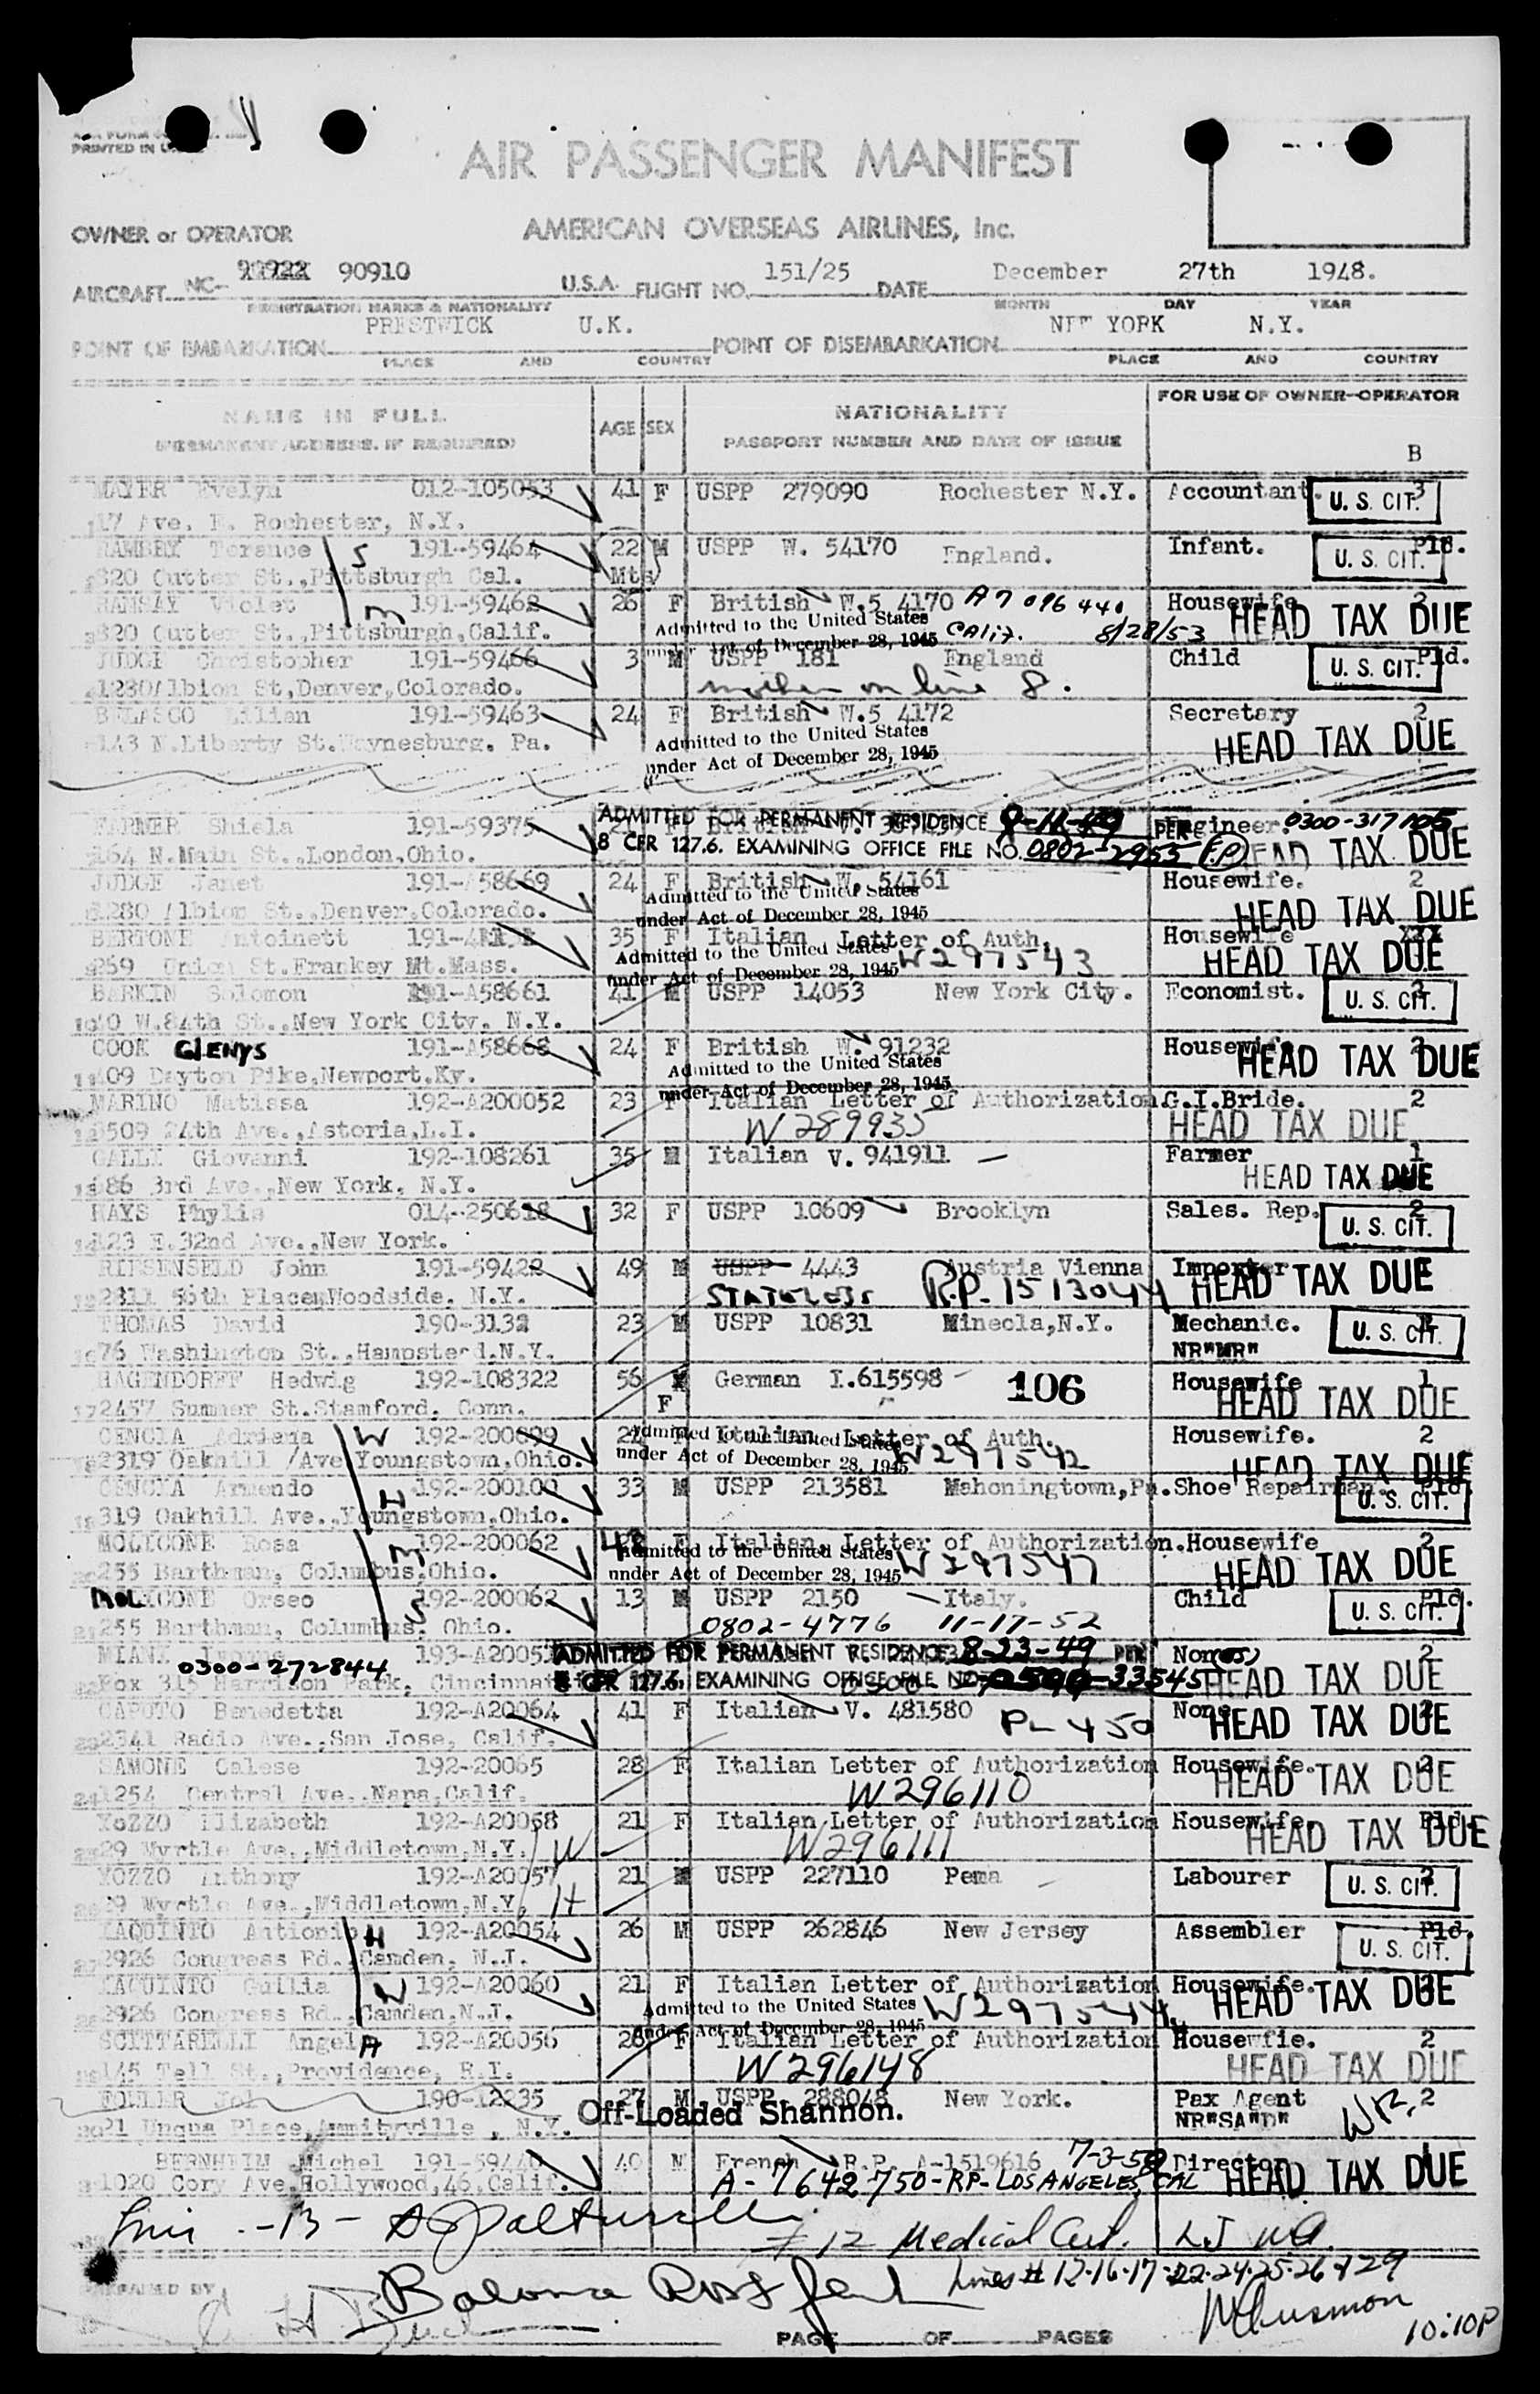 PRINTED IN
AIR PASSENGER MANIFEST
OWNER or OPERATOR AMERICAN OVERSEAS AIRLINES, Inc.
AIRCRAFT NC- 90910 U.S.A. FLIGHT NO. 151/25 DATE December 27th 1948.
REGISTRATION MARKS & NATIONALITY MONTH DAY YEAR
POINT OF EMBARKATION PRESTWICK U.K. POINT OF DISEMBARKATION YORK N.Y.
PLACE AND COUNTRY PLACE AND COUNTRY
NAME IN FULL AGE SEX NATIONALITY FOR USE OF OWNER-OPERATOR
(PERMANENT ADDRESS, IF REQUIRED) PASSPORT NUMBER AND DATE OF ISSUE B
MAYER Evelyn 012-105053 41 F USPP 279090 Rochester N.Y. Accountant. 3 U. S. CIT.
17 Ave. Rochester, N.Y.
Terance S 191-59464 22 M USPP W. 54170 England. Infant. Pld. U. S. CIT.
320 Cutter St.,Pittsburgh Cal. Mts
RAMSAY Violet m 191-59462 26 F British W.5 4170 A7 096 440 Housewife 2 HEAD TAX DUE
320 Cutter St.,Pittsburgh,Calif. Admitted to the United States Act of December 28, 1945 Calif. 8/28/53
JUDGE Christopher 191-59466 3 M USPP 181 England Child Pld. U. S. CIT.
1280 Albion St,Denver,Colorado. mother on line 8.
BELASCO Lilian 191-59463 24 F British W.5 4172 Secretary 2
143 N.Liberty St.Waynesburg. Pa. Admitted to the United States under Act of December 28, 1945 HEAD TAX DUE
FARMER Shiela 191-59375 ADMITTED FOR PERMANENT RESIDENCE PER 0300-317105
164 N.Main St.,London,Ohio. 8 CFR 127.6. EXAMINING OFFICE FILE NO. 0802-2955 HEAD TAX DUE
JUDGE Janet 191-58669 24 F British W. 54161 Housewife. 2
1280 Albion St.,Denver,Colorado. Admitted to the United States under Act of December 28, 1945 HEAD TAX DUE
BERTONE Antoinett 35 F Italian Letter of Auth. Housewife
Union St. Mass. Admitted to the United States under Act of December 28, 1945 W297543 HEAD TAX DUE
BARKIN Solomon 191-A58661 41 M USPP 14053 New York City. Economist. U. S. CIT.
W.84th St.,New York City. N.Y.
COOK GLENYS 191-A58668 24 F British W. 91232 Housewife 2 HEAD TAX DUE
409 Dayton Pike,Newport.Ky. Admitted to the United States under Act of December 28, 1945
MARINO Matissa 192-A200052 23 F Italian Letter of Authorization. G.I.Bride. 2
2509 24th Ave.,Astoria,L.I. W289935 HEAD TAX DUE
GALLI Giovanni 192-108261 35 M Italian V. 941911 Farmer 1
3rd Ave.,New York, N.Y. HEAD TAX DUE
HAYS Phylis 014-250618 32 F USPP 10609 Brooklyn Sales. Rep. 2 U. S. CIT.
123 E.32nd Ave.,New York.
John 191-59422 49 M USPP 4443 Austria Vienna Importer
Woodside. N.Y. STATELESS R.P. 1513044 HEAD TAX DUE
THOMAS David 190-3132 23 M USPP 10831 Mineola,N.Y. Mechanic. U. S. CIT.
76 Washington St.,Hempstead.N.Y. NR"MR"
HAGENDORFF Hedwig 192-108322 56 German I.615598 106 Housewife 1
2457 Summer St.Stamford. Conn. F HEAD TAX DUE
CENCIA Adriana W 192-200099 F Italian Letter of Auth. Housewife. 2
2319 Oakhill Ave Youngstown,Ohio. Admitted to the United States under Act of December 28, 1945 W297542 HEAD TAX DUE
Armendo H 192-200100 33 M USPP 213581 Mahoningtown,Pa. Shoe Repairman. Pld. U. S. CIT.
319 Oakhill Ave.,Youngstown,Ohio.
MOLICONE Rosa m 192-200062 42 F Italian Letter of Authorization. Housewife 2
255 Barthman, Columbus,Ohio. Admitted to the United States under Act of December 28, 1945 W297547 HEAD TAX DUE
MOLICONE Orseo S 192-200062 13 M USPP 2150 Italy. Child Pld. U. S. CIT.
255 Barthman, Columbus, Ohio. 0802-4776 11-17-52
MIANI 193-A2005 ADMITTED FOR PERMANENT RESIDENCE 8-23-49 PER None 2
0300-272844
Box 315 Harrison Park, Cincinnati 8 CFR 127.6. EXAMINING OFFICE FILE NO. -33545 HEAD TAX DUE
CAPUTO Benedetta 192-A20064 41 F Italian V. 481580 PL 450 None 2 HEAD TAX DUE
2341 Radio Ave.,San Jose, Calif.
SAMONE Calese 192-20065 28 F Italian Letter of Authorization Housewife. 2
1254 Central Ave.,Napa,Calif. W296110 HEAD TAX DUE
YOZZO Elizabeth 192-A20058 21 F Italian Letter of Authorization Housewife. Pld.
29 Myrtle Ave.,Middletown,N.Y. W W296111 HEAD TAX DUE
YOZZO Anthony 192-A20057 21 M USPP 227110 Pema Labourer 2 U. S. CIT.
29 Myrtle Ave.,Middletown,N.Y. H
IAQUINTO Antionio H 192-A20054 26 M USPP 262846 New Jersey Assembler Pld. U. S. CIT.
2926 Congress Rd.,Camden, N.J.
IAQUINTO Guilia W 192-A20060 21 F Italian Letter of Authorization Housewife. HEAD TAX DUE
2926 Congress Rd.,Camden,N.J. Admitted to the United States under Act of December 28, 1945 W297544
SCITTARELLI AngelA 192-A20056 26 F Italian Letter of Authorization Housewfie. 2
145 Tell St.,Providence, R.I. W296148 HEAD TAX DUE
190-12235 27 M USPP 288048 New York. Pax Agent 2
21 Place,Ammityville, N.Y. Off-Loaded Shannon. NR"SA"D"
BERNHEIM Michel 191-59440 40 M French R.P. A-1519616 7-3-50 Director 1
1020 Cory Ave.Hollywood,46,Calif. A-7642750-RP-LOS ANGELES, CAL HEAD TAX DUE
-13-
# 12 Medical Cert.
Lines # 12-16-17-22-24-25-26 & 29
PREPARED BY
10:10P
PAGE OF PAGES